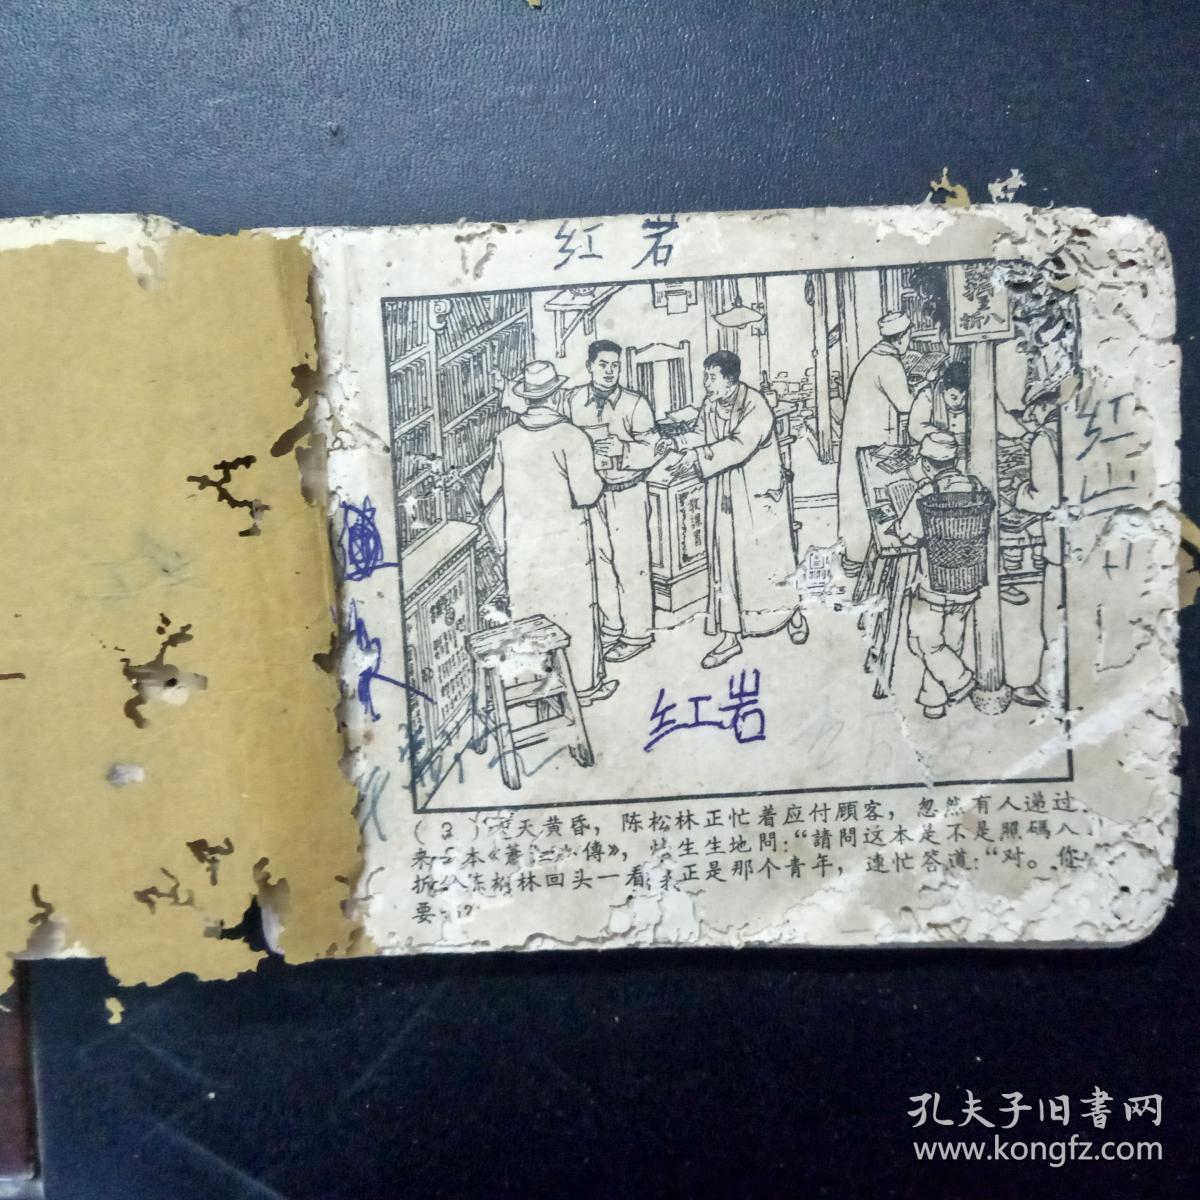 红岩
八折
红岩
教課書
红岩
(3)天黄昏，陈松林正忙着应付顧客，忽然有人递过
来本《蕭傳》，怯生生地問：“請問这本是不是照碼八
折林回头一看，正是那个青年，連忙答道：“对。你
要
孔夫子旧書网
www.kongfz.com